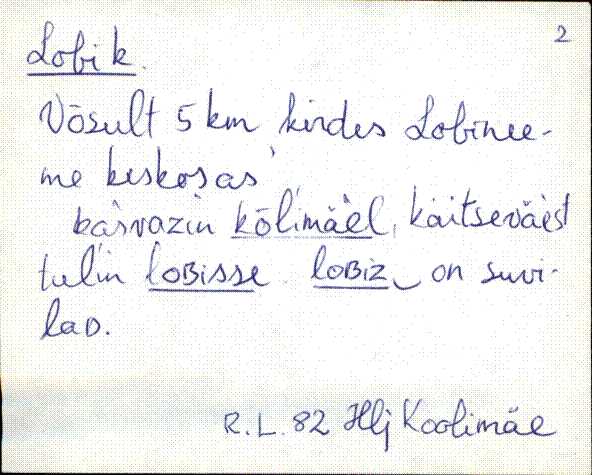 2
Lobi k.
Võsult 5 km kirdes Lobinee-
me keskosas
kàsvazin kõlimäèl, kàitseväèst
tul'in loʙisse. loʙiz on suvi-
laᴅ.
R.L. 82 Hlj Koolimäe